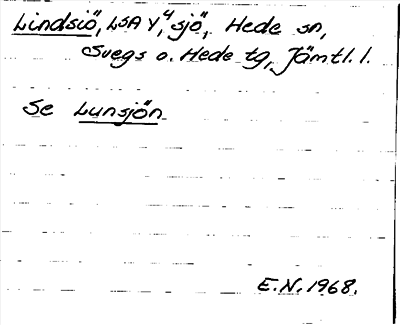 Lindsiö, LSA Y⁴, sjö, Hede sn,
Svegs o. Hede tg, Jämtl. l.
Se Lunsjön
E.N. 1968.